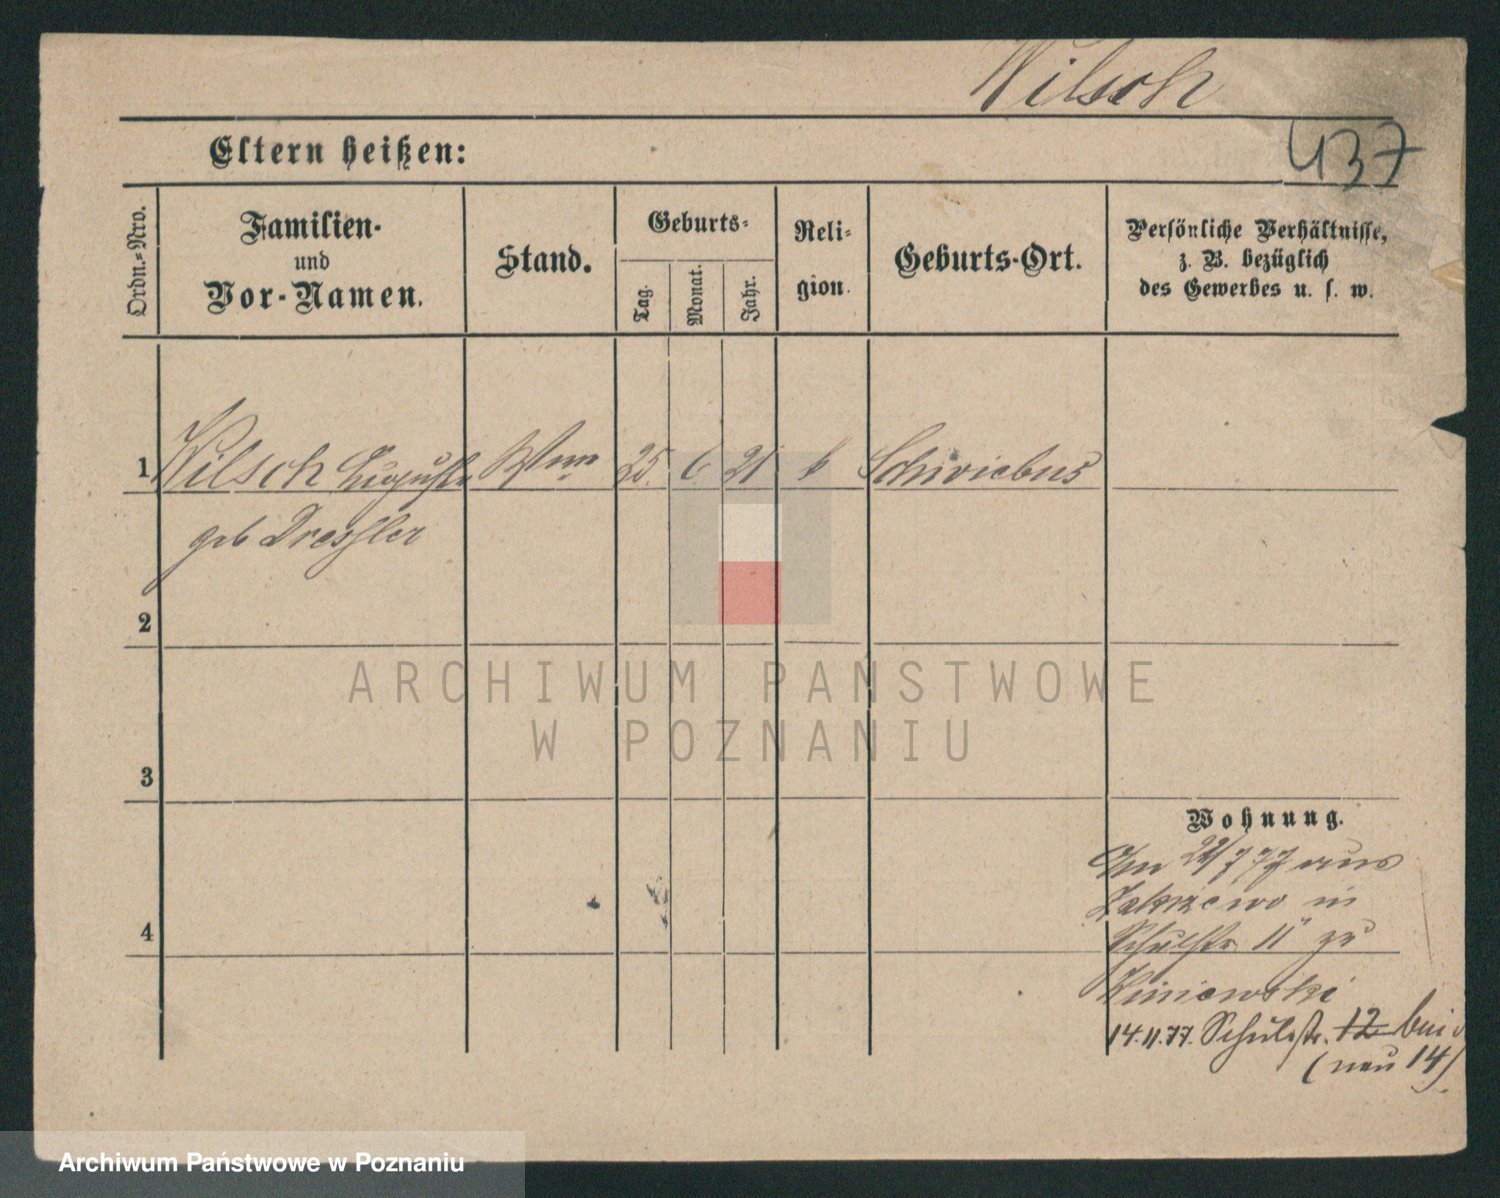 Wilsch
Eltern heißen:
437
Ordn.-Nro.
Familien-
und
Vor-Namen.
Stand.
Geburts-
Tag.
Monat.
Jahr.
Reli-
gion.
Geburts-Ort.
Persönliche Verhältnisse,
z. B. bezüglich
des Gewerbes u. s. w.
1 Wilsch Auguste Wwe 25. 6. 21 k Schwiebus
geb Dressler
2
3
4
Wohnung.
Am 22/7 77 aus
Zakrzewo in
Schulstr 11 zu
14.11.77. Schulstr. 12 bei
(neu 14)
ARCHIWUM PAŃSTWOWE
W POZNANIU
Archiwum Państwowe w Poznaniu